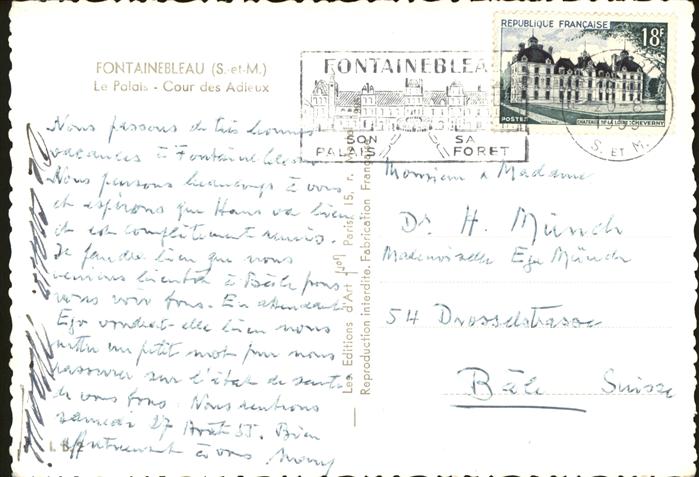 FONTAINEBLEAU (S.-et-M.)
Le Palais - Cour des Adieux
Nous passons de très bonnes
vacances à Fontainebleau
Nous pensons beaucoup à vous
et espérons que Hans va bien
et est complètement remis.
que nous
bientôt à Bâle pour
vous voir tous. En attendant
Ega voudrait-elle bien nous
mettre un petit mot pour nous
rassurer sur l'état de santé
de vous tous. Nous rentrons
samedi 27 Août 55. Bien
affectueusement à vous.
Les Editions d'Art
Paris 15, r.
Reproduction interdite. Fabrication Française
FONTAINEBLEAU
SON PALAIS
SA FORET
REPUBLIQUE FRANÇAISE
18F
POSTES
CHATEAUX DE LA LOIRE : CHEVERNY
S. ET M.
Monsieur & Madame
Dr. H. Münch
Mademoiselle Ega Münch
54 Drosselstrasse
Bâle Suisse